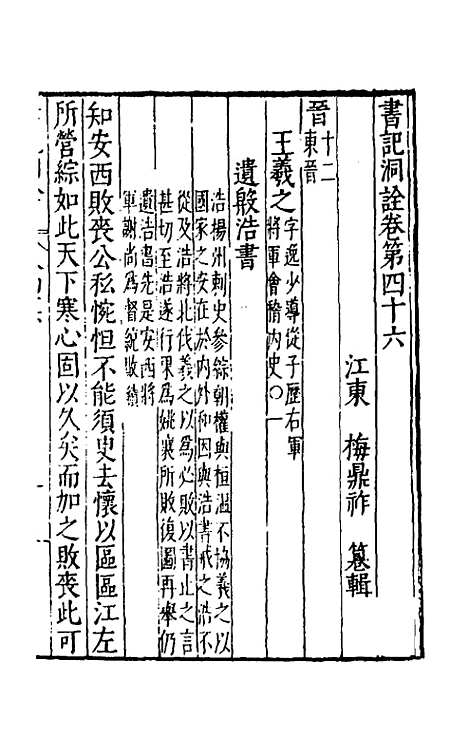 書記洞詮卷第四十六
江東 梅鼎祚 纂輯
晉十二
東晉
王羲之字逸少導從子歷右軍
將軍會稽內史〇一
遺殷浩書
浩揚州刺史參綜朝權與桓溫不協羲之以
國家之安在於內外和因與浩書戒之浩不
從及浩將北伐羲之以為必敗以書止之言
甚切至浩遂行果為姚襄所敗復圖再舉仍
遺浩書先是安西將
軍謝尚為督統敗績
知安西敗喪公私惋怛不能須臾去懷以區區江左
所營綜如此天下寒心固以久矣而加之敗喪此可